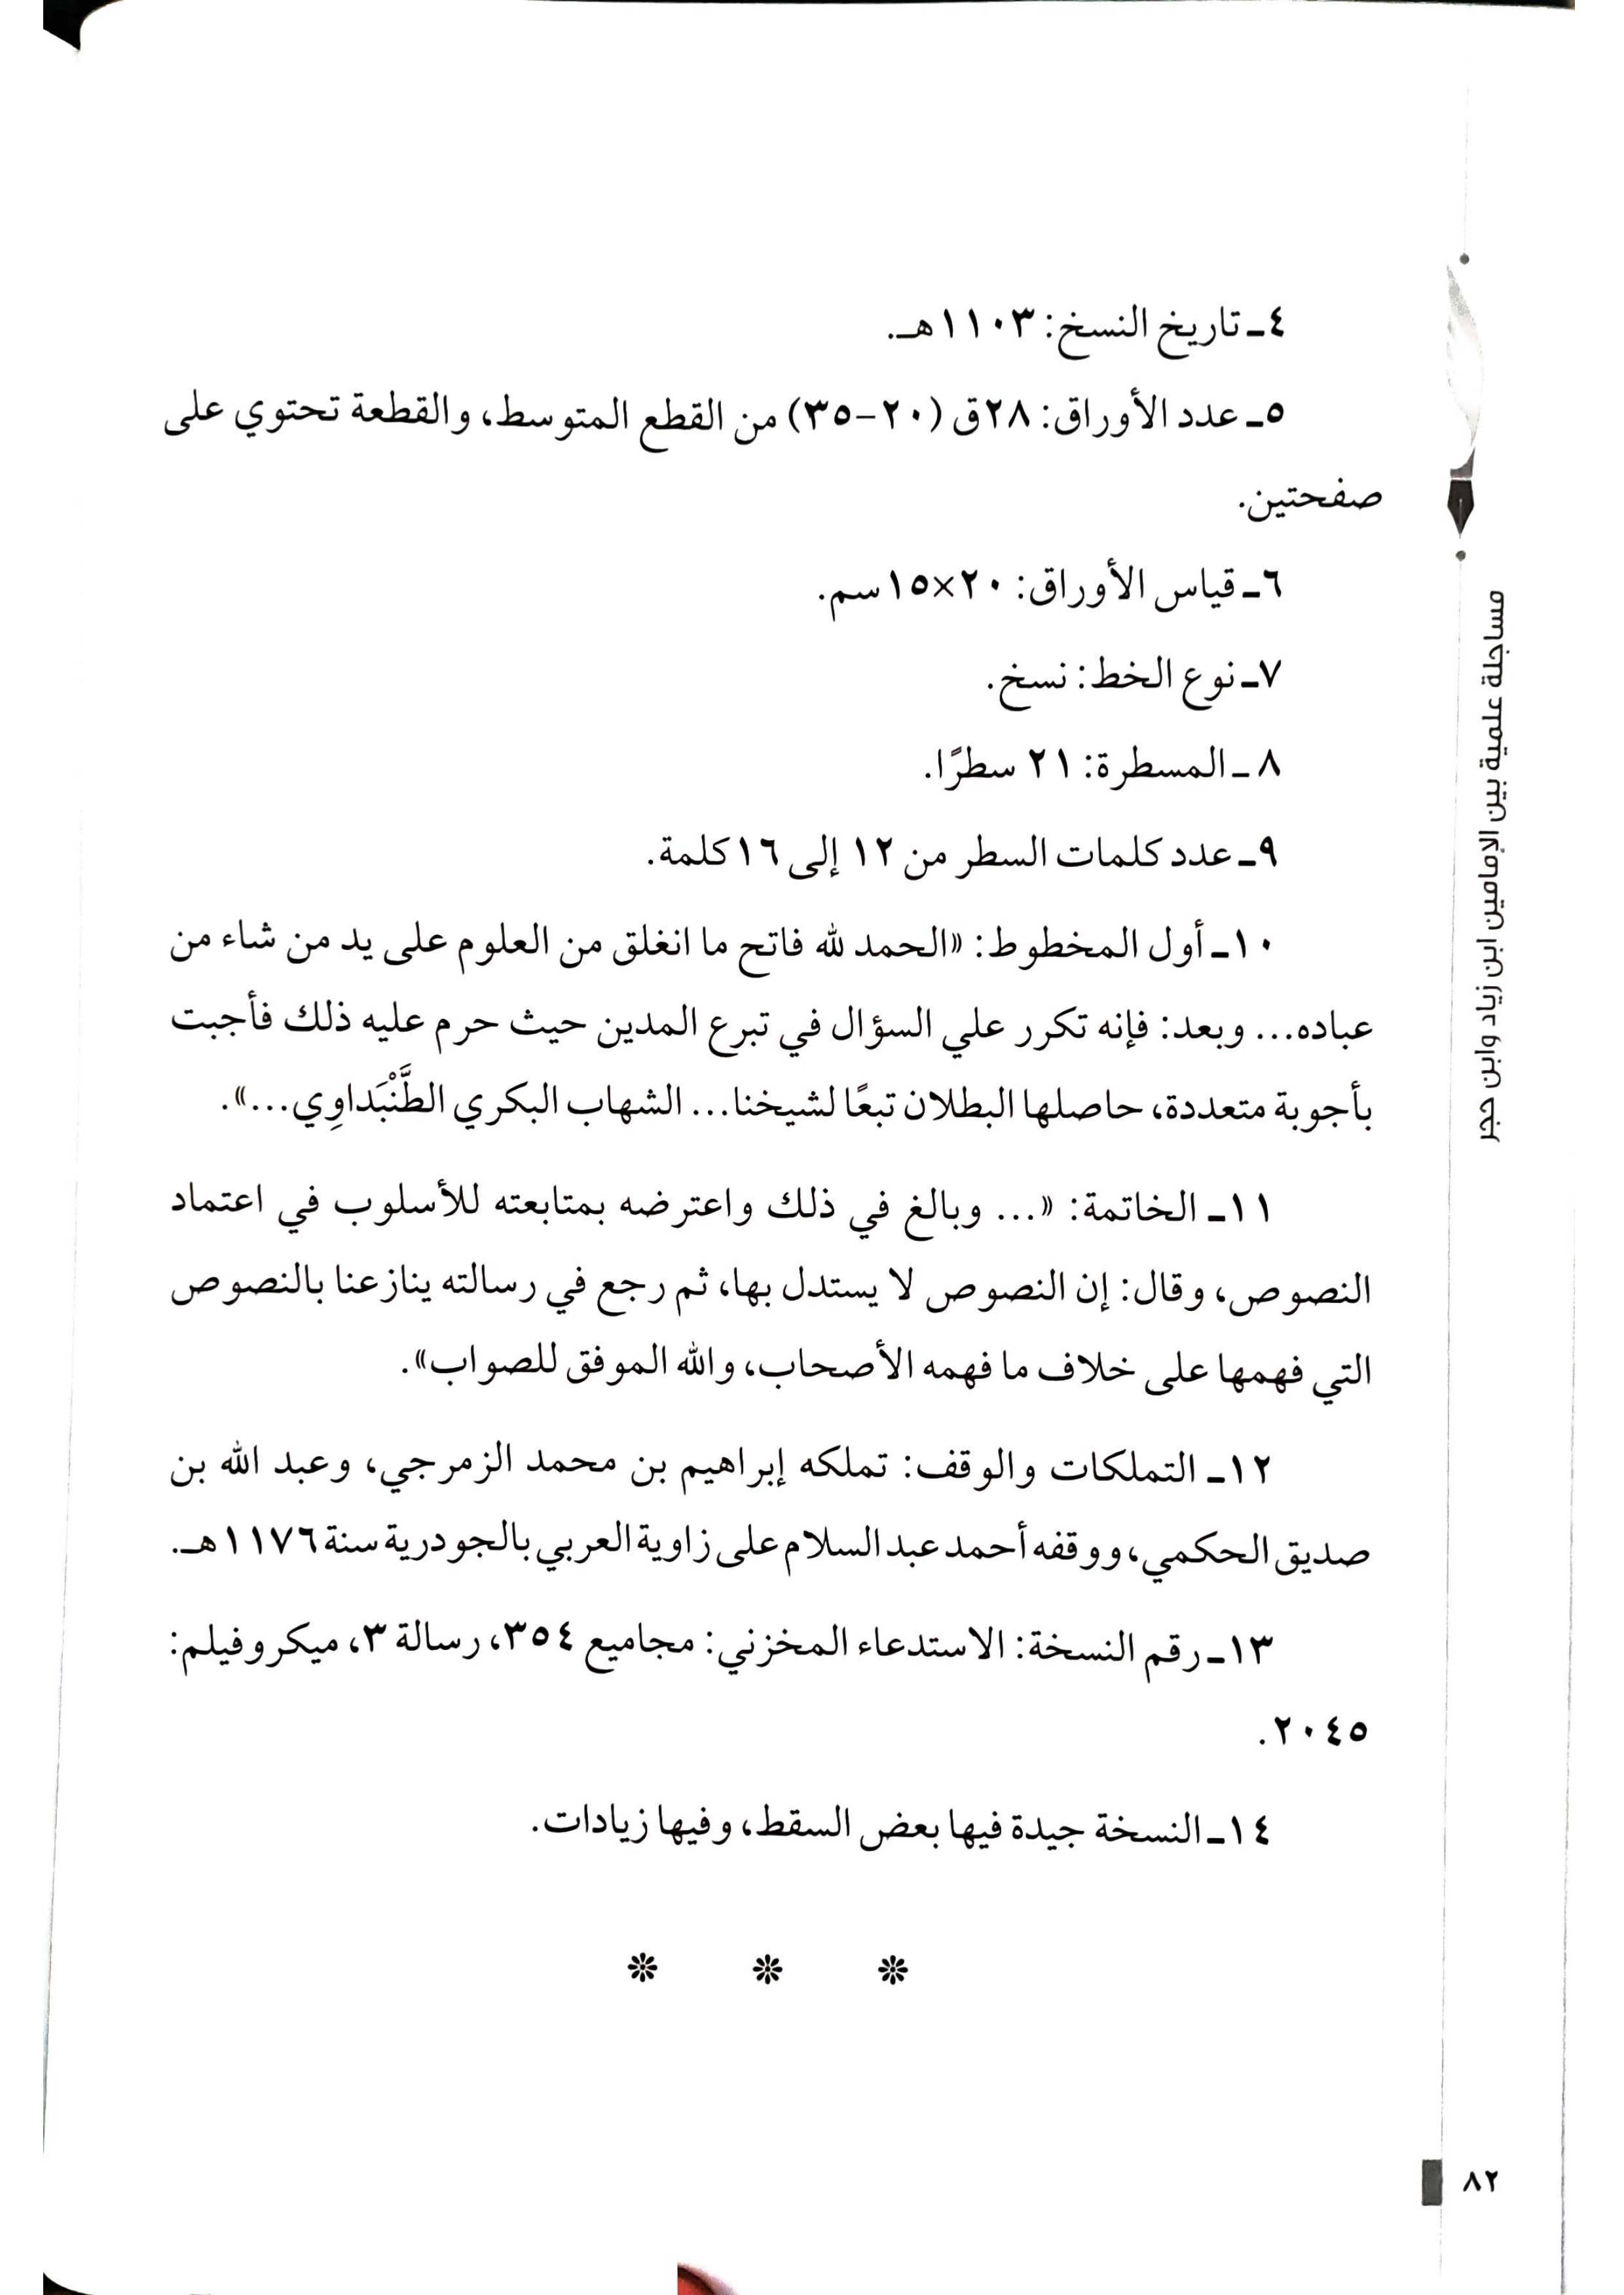 ٤ـ تاريخ النسخ: ١١٠٣هـ.
٥ـ عدد الأوراق: ٢٨ق (٢٠-٣٥) من القطع المتوسط، والقطعة تحتوي على
صفحتين.
٦ـ قياس الأوراق: ٢٠×١٥سم.
٧ـ نوع الخط: نسخ.
٨ـ المسطرة: ٢١ سطرًا.
٩ـ عدد كلمات السطر من ١٢ إلى ١٦ كلمة.
١٠ـ أول المخطوط: «الحمد لله فاتح ما انغلق من العلوم على يد من شاء من
عباده... وبعد: فإنه تكرر علي السؤال في تبرع المدين حيث حرم عليه ذلك فأجبت
بأجوبة متعددة، حاصلها البطلان تبعًا لشيخنا... الشهاب البكري الطَّنْبَداوِي...».
١١ـ الخاتمة: «... وبالغ في ذلك واعترضه بمتابعته للأسلوب في اعتماد
النصوص، وقال: إن النصوص لا يستدل بها، ثم رجع في رسالته ينازعنا بالنصوص
التي فهمها على خلاف ما فهمه الأصحاب، والله الموفق للصواب».
١٢ـ التملكات والوقف: تملكه إبراهيم بن محمد الزمرجي، وعبد الله بن
صديق الحكمي، ووقفه أحمد عبد السلام على زاوية العربي بالجودرية سنة ١١٧٦هـ.
١٣ـ رقم النسخة: الاستدعاء المخزني: مجاميع ٣٥٤، رسالة ٣، ميكروفيلم:
٢٠٤٥.
١٤ـ النسخة جيدة فيها بعض السقط، وفيها زيادات.
مساجلة علمية بين الإمامين ابن زياد وابن حجر
٨٢